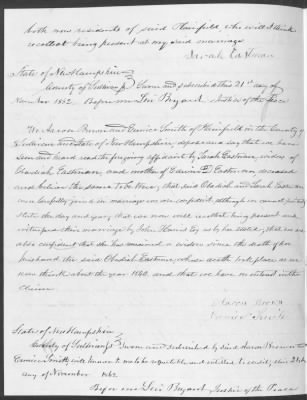 both now residents of said Plainfield who will I think
recollect being present at my said marriage
Sarah Eastman
State of New Hampshire
County of Sullivan SS Sworn and subscribed this 21st day of
November 1862 Before me Levi Bryant Justice of the Peace
We Aaron Brown and Eunice Smith of Plainfield in the County of
Sullivan and State of New Hampshire depose and say that we have
seen and heard read the foregoing affidavit by Sarah Eastman, widow of
Obadiah Eastman, and mother of Edwin E Eastman deceased
and believe the same to be true, that said Obadiah and Sarah East-
man lawfully joined in marriage we are confident, although we cannot
state the day and year, that we now will recollect being present and
witnessed their marriage by John Harris Esq as by her stated, that we are
also confident that she has remained a widow since the death of her
husband the said Obadiah Eastman, whose death took place as we
now think about the year 1840, and that we have no interest in this
claim
Aaron Brown
Eunice Smith
State of New Hampshire
County of Sullivan SS Sworn and subscribed by said Aaron Brown and
Eunice Smith, well known to me to be reputable and entitled to credit, this 21st
day of November 1862
Before me Levi Bryant Justice of the Peace